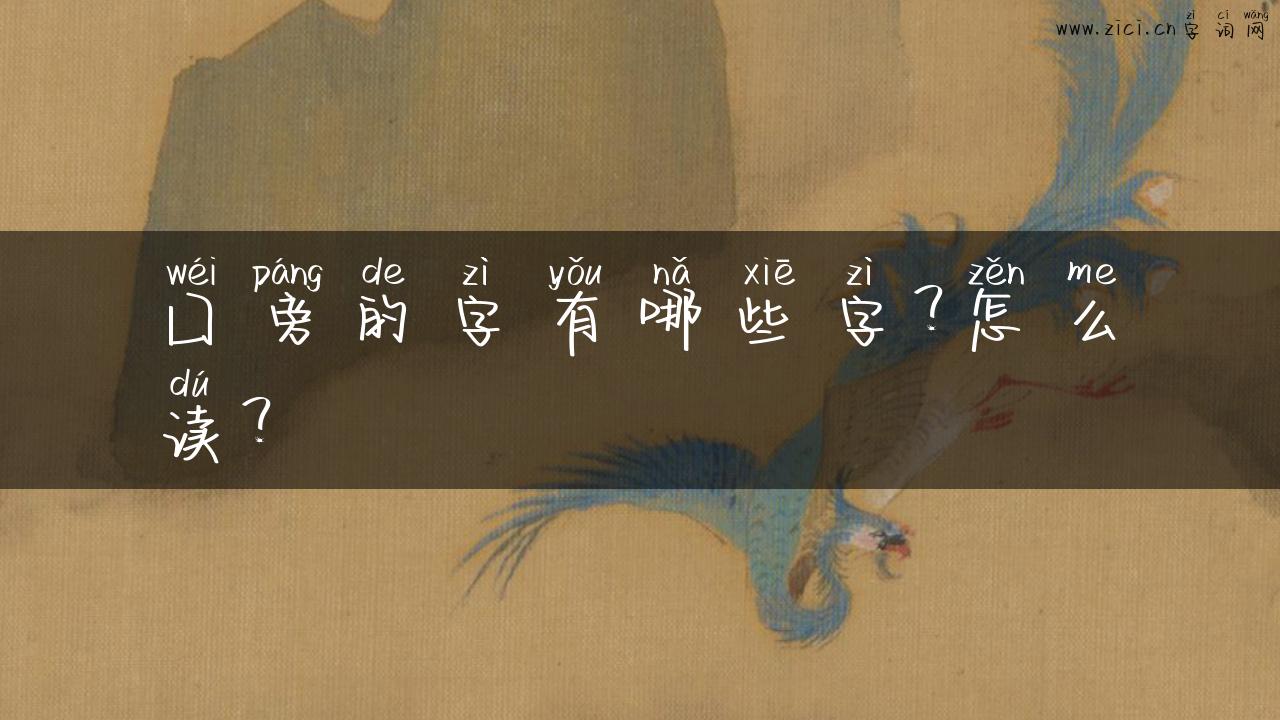 www.zici.cn字词网
zì cí wǎng
wéi páng de zì yǒu nǎ xiē zì zěn me
囗旁的字有哪些字?怎么
dú
读?